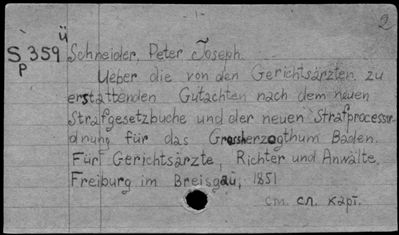 2
ü
S 359 Schneider, Peter Joseph.
p
Ueber die von den Gerichtsärzten zu
erstattenden Gutachten nach dem neuen
Strafgesetzbuche und der neuen Strafprocessor-
dnung für das Grossherzogthum Baden.
Für Gerichtsärzte, Richter und Anwälte,
Freiburg im Breisgau, 1851
см. сл. карт.